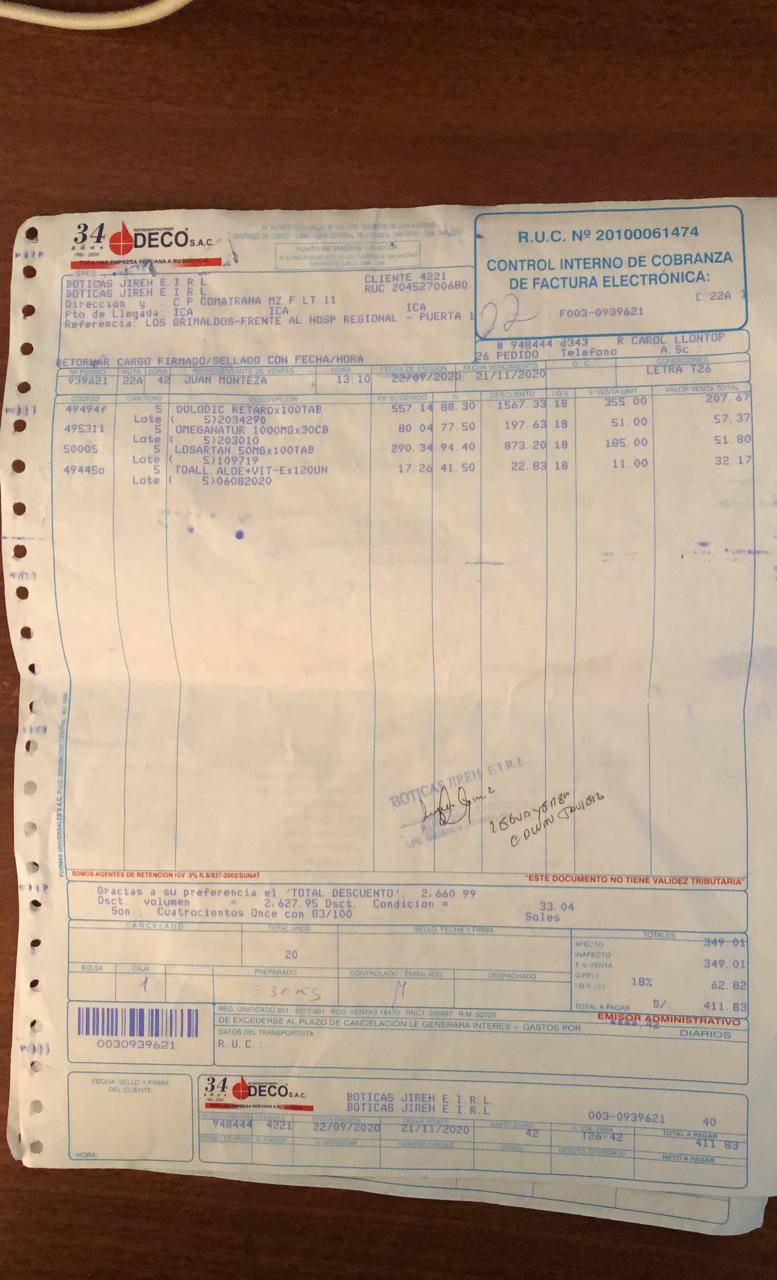 34 años
1986 - 2020
REPRESENTACIONES
DECO S.A.C.
TODA UNA EMPRESA PERUANA A SU SERVICIO
PUNTO DE EMISIÓN Y PARTIDA
R.U.C. Nº 20100061474
CONTROL INTERNO DE COBRANZA
DE FACTURA ELECTRÓNICA:
C 22A
22
F003-0939621
BOTICAS JIREH E I R L CLIENTE 4221
BOTICAS JIREH E I R L RUC 20452700680
Direccion y : C P COMATRANA MZ F LT 11
Pto.de Llegada: ICA ICA ICA
Referencia: LOS GRIMALDOS-FRENTE AL HOSP.REGIONAL - PUERTA 1
# 948444 d343 R.CAROL LLONTOP
RETORNAR CARGO FIRMADO/SELLADO CON FECHA/HORA
26 PEDIDO : Telefono A.Sc
Nº PEDIDO RUTA ZONA REPRESENTANTE DE VENTAS HORA FECHA DE EMISIÓN FECHA VENCIMIENTO O.C. CONDICIONES
939621 22A 42 JUAN MONTEZA 13:10 22/09/2020 21/11/2020 LETRA T26
CÓDIGO CANTIDAD DESCRIPCIÓN PP SUGERIDO % DESCUENTO I.G.V. V.VENTA UNIT VALOR VENTA TOTAL
49494f 5 DOLODIC RETARDx100TAB 557.14 88.30 1567.33 18 355.00 207.67
Lote ( 5)2034290
495311 5 OMEGANATUR 1000MGx30CB 80 04 77.50 197.63 18 51.00 57.37
Lote ( 5)203010
50005 5 LOSARTAN 50MGx100TAB 290.34 94.40 873.20 18 185.00 51.80
Lote ( 5)109719
49445o 5 TOALL ALOE+VIT-Ex120UN 17.26 41.50 22.83 18 11.00 32.17
Lote ( 5)06082020
BOTICAS JIREH E.I.R.L
SOMOS AGENTES DE RETENCION IGV 3% R.S/037-2002/SUNAT
"ESTE DOCUMENTO NO TIENE VALIDEZ TRIBUTARIA"
Gracias a su preferencia el 'TOTAL DESCUENTO': 2,660.99
Dsct. volumen = 2,627.95 Dsct. Condicion = 33.04
Son : Cuatrocientos Once con 83/100 Soles
CANCELADO TOTAL UNDS SELLO, FECHA Y FIRMA TOTALES
20
AFECTO 349.01
INAFECTO
T.V.VENTA 349.01
I.G.V.(+) 18% 62.82
TOTAL A PAGAR S/. 411.83
BOLSA CAJA PREPARADO CONTROLADO / EMBALADO DESPACHADO
1
EMISOR ADMINISTRATIVO
DE EXCEDERSE AL PLAZO DE CANCELACIÓN LE GENERARA INTERES + GASTOS POR DIARIOS
DATOS DEL TRANSPORTISTA
R. U. C. :
0030939621
FECHA, SELLO Y FIRMA
DEL CLIENTE
HORA:
34 años
REPRESENTACIONES
DECO S.A.C.
TODA UNA EMPRESA PERUANA A SU SERVICIO
BOTICAS JIREH E I R L
BOTICAS JIREH E I R L
003-0939621 40
FECHA EMISIÓN TOTAL A PAGAR
948444 4221 22/09/2020 21/11/2020 42 T26-42 411 83
NÚMERO CHEQUE NETO A PAGAR